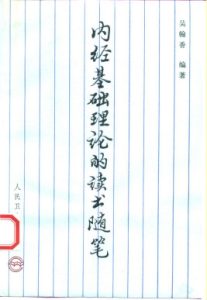 吴翰香 编著
内经基础理论的读书随笔
人民卫